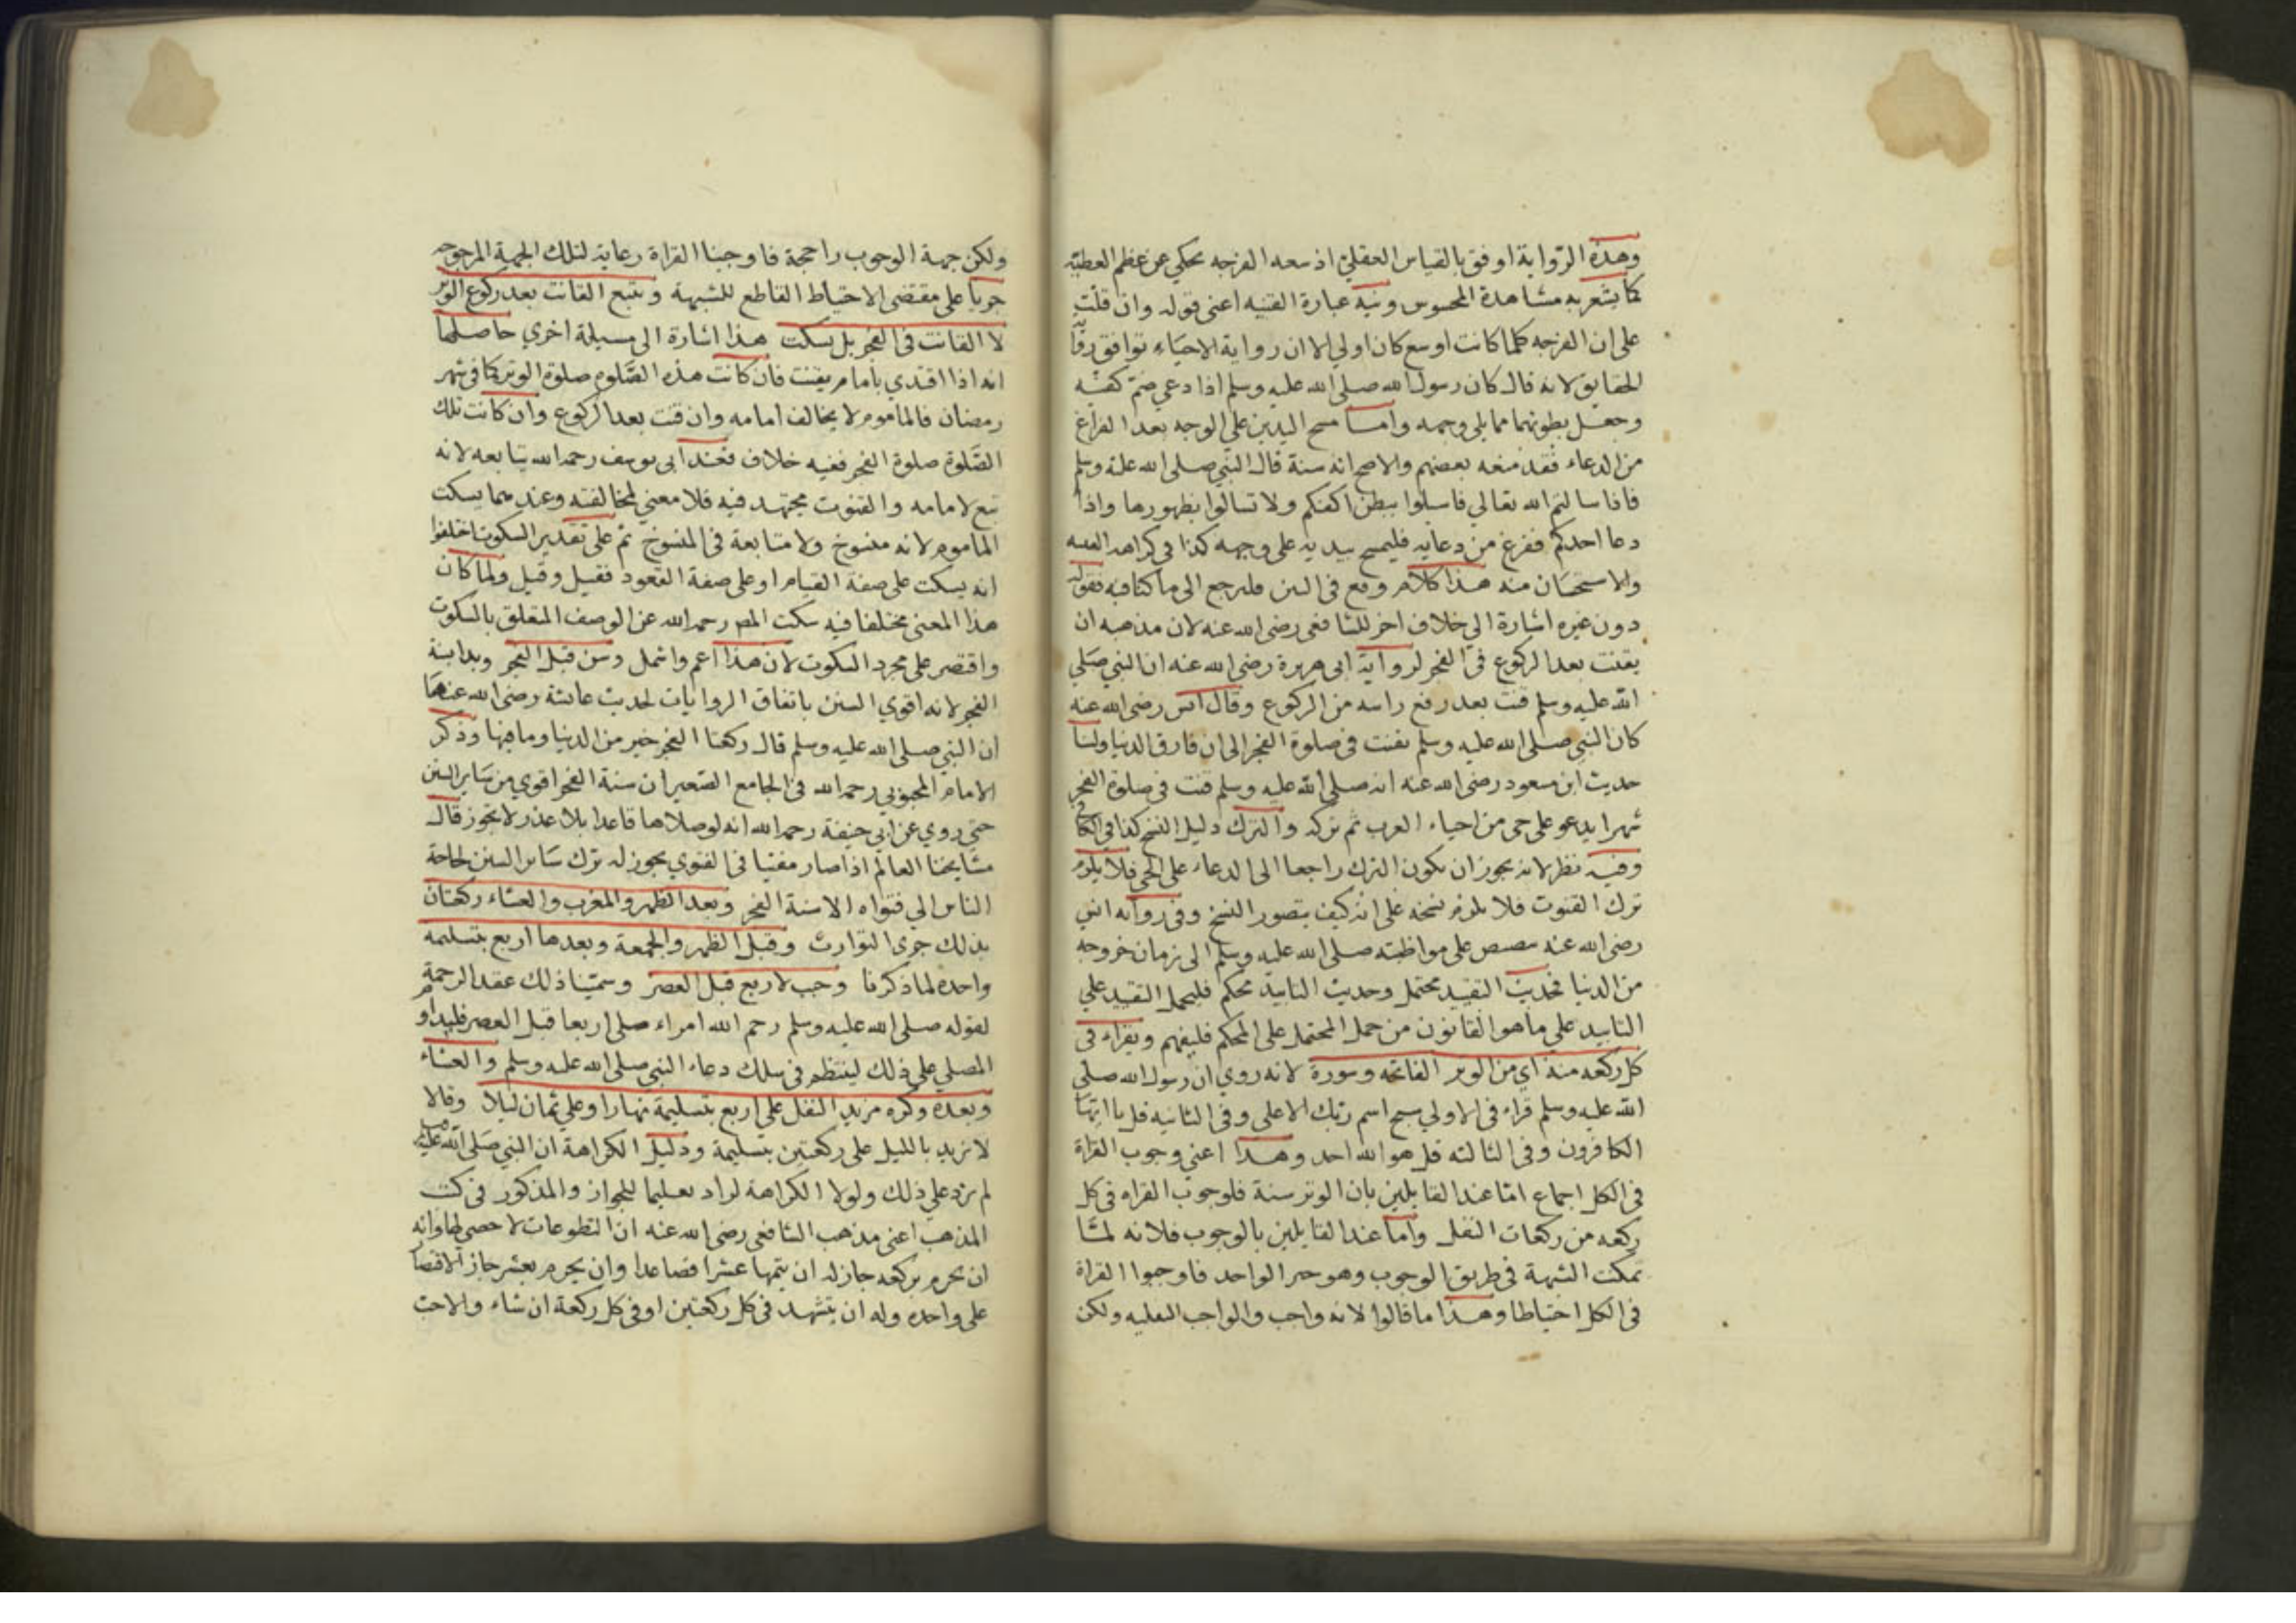 وهذه الرواية اوفق بالقياس العقلي اذ سعه الفرجه تحكي عن عظم العطية
كما يشعر به مشاهدة المحسوس ونبه عبارة القنيه اعنى قوله وان قلت
على ان الفرجه كلما كانت اوسع كان اولي الا ان رواية الاحياء توافق
الحقايق لانه قال كان رسول الله صلى الله عليه وسلم اذا دعي ضم كفيه
وجعل بطونهما مما يلي وجهه واما مسح اليدين علي الوجه بعد الفراغ
من الدعاء فقد منعه بعضهم والاصح انه سنة قال النبي صلى الله عليه وسلم
فاذا سالتم الله تعالي فاسلوا ببطن اكفكم ولا تسالوا بظهورها واذا
دعا احدكم ففرغ من دعايه فليمسح بيديه على وجهه كذا في كراهه
والاستحسان منه هذا كلام وقع في البين فلنرجع الى ما كنا فيه فقوله
دون غيره اشارة الي خلاف اخر للشافعي رضي الله عنه لان مذهبه ان
يقنت بعد الركوع في الفجر لرواية ابى هريرة رضي الله عنه ان النبي صلي
الله عليه وسلم قنت بعد رفع راسه من الركوع وقال انس رضي الله عنه
كان النبي صلى الله عليه وسلم يقنت في صلوة الفجر الى ان فارق الدنيا ولنا
حديث ابن مسعود رضي الله عنه انه صلى الله عليه وسلم قنت في صلوة الفجر
شهرا يدعو على حي من احياء العرب ثم تركه والترك دليل النسخ كذا في الكافي
وفيه نظر لانه يجوز ان يكون الترك راجعا الى الدعاء على الحي فلا يلزم
ترك القنوت فلا يلزم نسخه على انه كيف يتصور النسخ وفي رواية انس
رضي الله عنه على مواظبته صلى الله عليه وسلم الى زمان خروجه
من الدنيا فحديث التقييد محتمل وحديث التابيد محكم فليحمل التقييد علي
التابيد على ما هو القانون من حمل المحتمل على المحكم فليفهم ويقراء في
كل ركعه منه اي من الوتر الفاتحه وسورة لانه روي ان رسول الله صلى
الله عليه وسلم قراء في الاولي سبح اسم ربك الاعلى وفي الثانيه قل يا ايها
الكافرون وفي الثالثه قل هو الله احد وهذا اعني وجوب القراة
في الكل اجماع اما عند القايلين بان الوتر سنة فلوجوب القراه في كل
ركعه من ركعات النفل واما عند القايلين بالوجوب فلانه لما
تمكنت الشبهة في طريق الوجوب وهو خبر الواحد فاوجبوا القراة
في الكل احتياطا وهذا ما قالوا لانه واجب والواجب ولكن
ولكن جهة الوجوب راجحة فاوجبنا القراة رعاية لتلك الجهة المرجوحه
جريا على مقتضى الاحتياط القاطع للشبهة ويتبع القانت بعد ركوع الوتر
لا القانت في الفجر بل يسكت هذا اشارة الى مسيلة اخري حاصلها
انه اذا اقتدي بامام يقنت فان كانت هذه الصلوه صلوة الوتر كما في شهر
رمضان فالماموم لا يخالف امامه وان قنت بعد الركوع وان كانت تلك
الصلوة صلوة الفجر ففيه خلاف فعند ابى يوسف رحمه الله يتابعه لانه
تبع لامامه والقنوت مجتهد فيه فلا معني لمخالفته وعندهما يسكت
الماموم لانه منسوخ ولا متابعة في المنسوخ ثم على تقدير السكوت اختلفوا
انه يسكت على صفة القيام او على صفة القعود فقيل وقيل ولما كان
هذا المعنى مختلفا فيه سكت المص رحمه الله عن الوصف المتعلق بالسكوت
واقتصر على مجرد السكوت لان هذا اعم واشمل وسن قبل الفجر وبدا بسنة
الفجر لانه اقوي السنن باتفاق الروايات لحديث عائشة رضي الله عنها
ان النبي صلى الله عليه وسلم قال ركعتا الفجر خير من الدنيا وما فيها وذكر
الامام المحبوبي رحمه الله في الجامع الصغير ان سنة الفجر اقوي من ساير السنن
حتي روي عن ابي حنيفة رحمه الله انه لو صلاها قاعدا بلا عذر لا يجوز قال
مشايخنا العالم اذا صار مفتيا في الفتوي يجوز له ترك ساير السنن لحاجة
الناس الي فتواه الا سنة الفجر وبعد الظهر والمغرب والعشاء ركعتان
بذلك جرى التوارث وقبل الظهر والجمعة وبعدها اربع بتسليمه
واحده لما ذكرنا وحب لاربع قبل العصر وسمينا ذلك عقد الرحمة
لقوله صلى الله عليه وسلم رحم الله امراء صلى اربعا قبل العصر فليداوم
المصلي علي ذلك لينتظم في سلك دعاء النبي صلى الله عليه وسلم والعشاء
وبعده وكره مزيد النفل على اربع بتسليمة نهارا وعلي ثمان ليلا وقالا
لا تزيد بالليل على ركعتين بتسليمة ودليل الكراهة ان النبي صلى الله عليه وسلم
لم يزد علي ذلك ولولا الكراهة لزاد تعليما للجواز والمذكور في كتب
المذهب اعني مذهب الشافعي رضي الله عنه ان التطوعات لا حصر لها وانه
ان يحرم بركعه جاز له ان يتمها عشرا فصاعدا وان يحرم بعشر جاز الاقتصار
على واحده وله ان يتشهد في كل ركعتين او في كل ركعة ان شاء والاحب